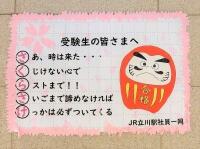 受験生の皆さまへ
さあ、時は来た・・・
くじけないで
ラストまで!!
さいごまで諦めなければ
けっかは必ずついてくる
合格
JR立川駅社員一同